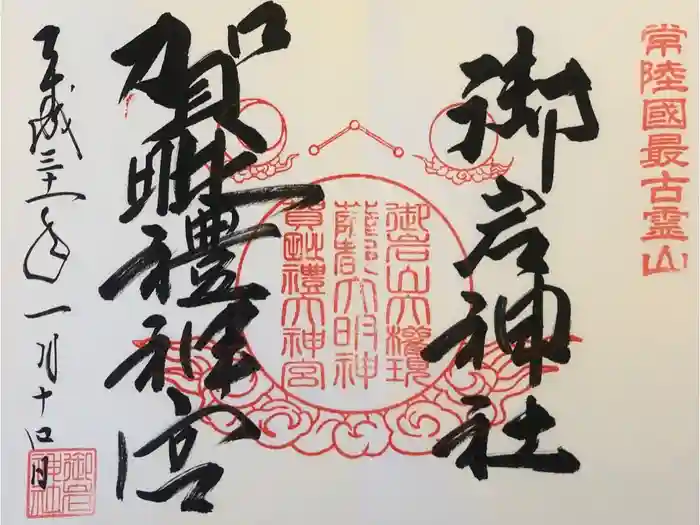 常陸國最古霊山
御岩神社
御岩山大權現
薩都大明神
賀毗禮大神宮
賀毗禮神宮
平成三十一年一月十四日
御岩
神社